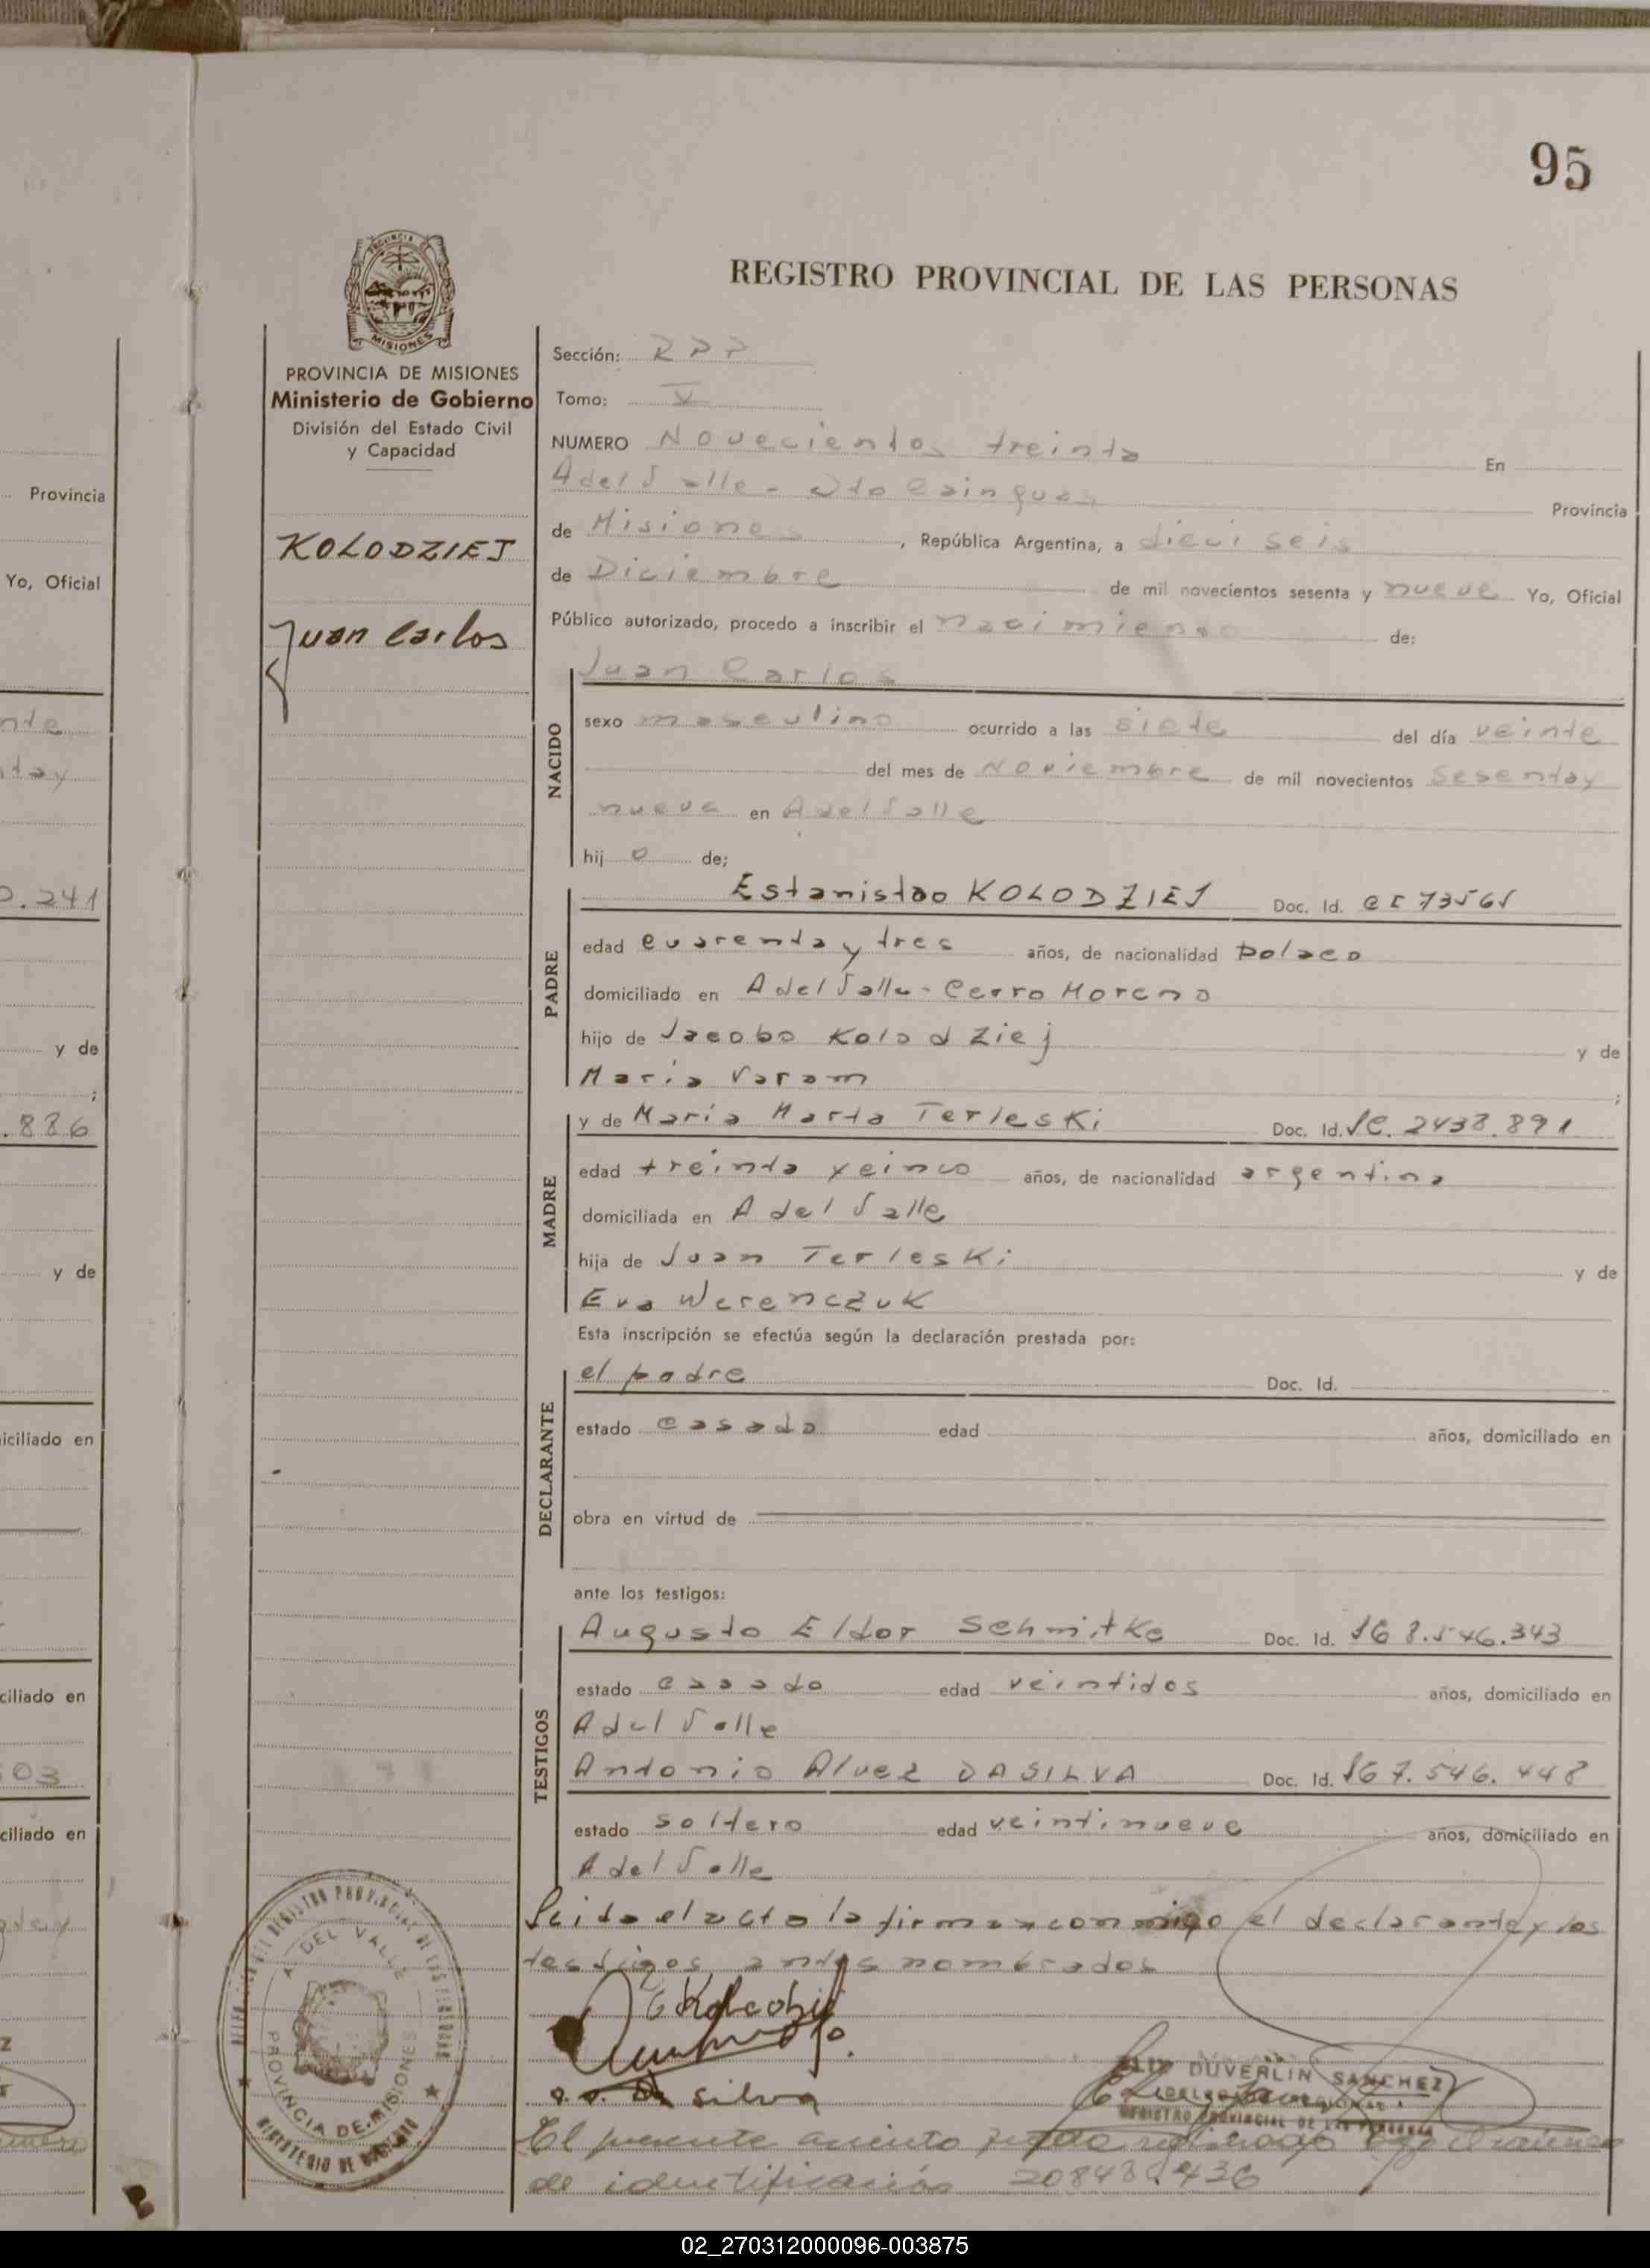 95
PROVINCIA DE
MISIONES
PROVINCIA DE MISIONES
Ministerio de Gobierno
División del Estado Civil
y Capacidad
KOLODZIEJ
Juan Carlos
REGISTRO PROVINCIAL DE LAS PERSONAS
Sección: RPP
Tomo: V
NUMERO Novecientos treinta En
A del Valle - Dto Cainguas Provincia
de Misiones, República Argentina, a dieci seis
de Diciembre de mil novecientos sesenta y nueve Yo, Oficial
Público autorizado, procedo a inscribir el nacimiento de:
Juan Carlos
NACIDO
sexo masculino ocurrido a las siete del día veinte
del mes de Noviembre de mil novecientos sesentay
nueve en A del Valle
hij o de;
PADRE
Estanislao KOLODZIEJ Doc. Id.
edad cuarenta y tres años, de nacionalidad polaco
domiciliado en A del Valle - Cerro Moreno
hijo de Jacobo Kolodziej y de
Maria Varam ;
MADRE
y de Maria Marta Terleski Doc. Id. 2438.891
edad treinta y cinco años, de nacionalidad argentina
domiciliada en A del Valle
hija de Juan Terleski y de
Eva Werenczuk
Esta inscripción se efectúa según la declaración prestada por:
DECLARANTE
el padre Doc. Id.
estado casado edad años, domiciliado en
obra en virtud de
ante los testigos:
TESTIGOS
Augusto Eldor Schmitke Doc. Id. 8.546.343
estado casado edad veintidos años, domiciliado en
A del Valle
Antonio Alvez DASILVA Doc. Id. 7.546.448
estado soltero edad veintinueve años, domiciliado en
A del Valle
Leida el acta la firman conmigo el declarante y los
testigos antes nombrados
Silva
DUVERLIN SANCHEZ
REGISTRO PROVINCIAL DE LAS PERSONAS
El presente asiento
de identificación
REGISTRO PROVINCIAL DE LAS PERSONAS
A. DEL VALLE
PROVINCIA DE MISIONES
MINISTERIO DE GOBIERNO
Provincia
Yo, Oficial
.241
y de
;
.886
y de
iciliado en
ciliado en
03
ciliado en
02_270312000096-003875